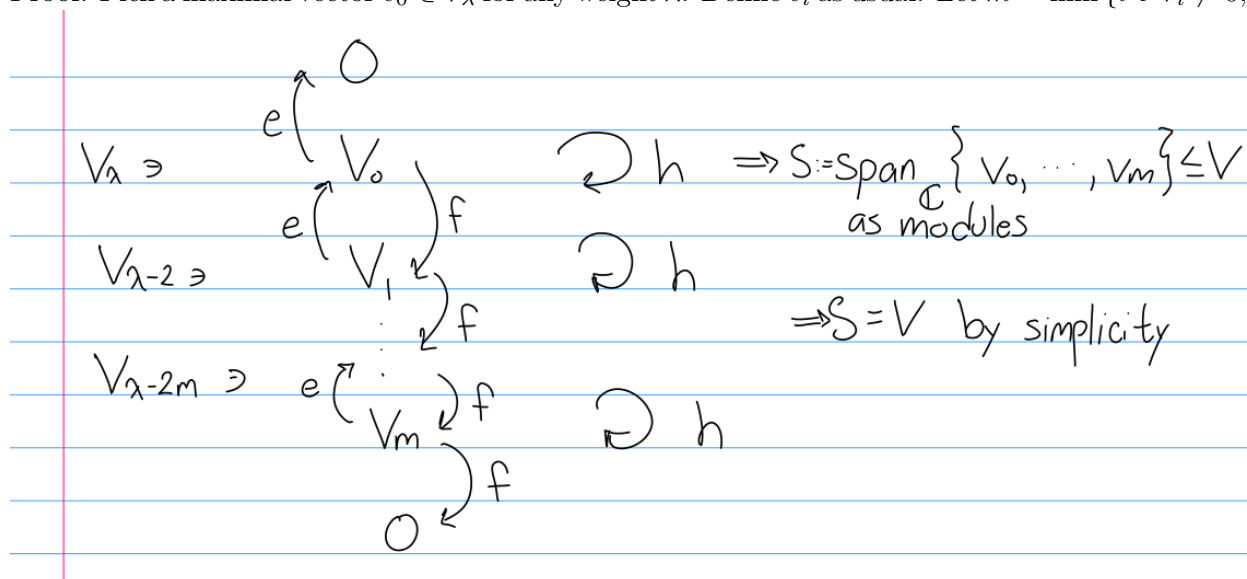 O
e
V_λ ∋ V_0 h ⇒ S:=span_ℂ {V_0, ⋯, V_m} ≤ V
as modules
e f
V_{λ-2} ∋ V_1 h
f
⇒ S=V by simplicity
V_{λ-2m} ∋ e f
V_m h
f
O